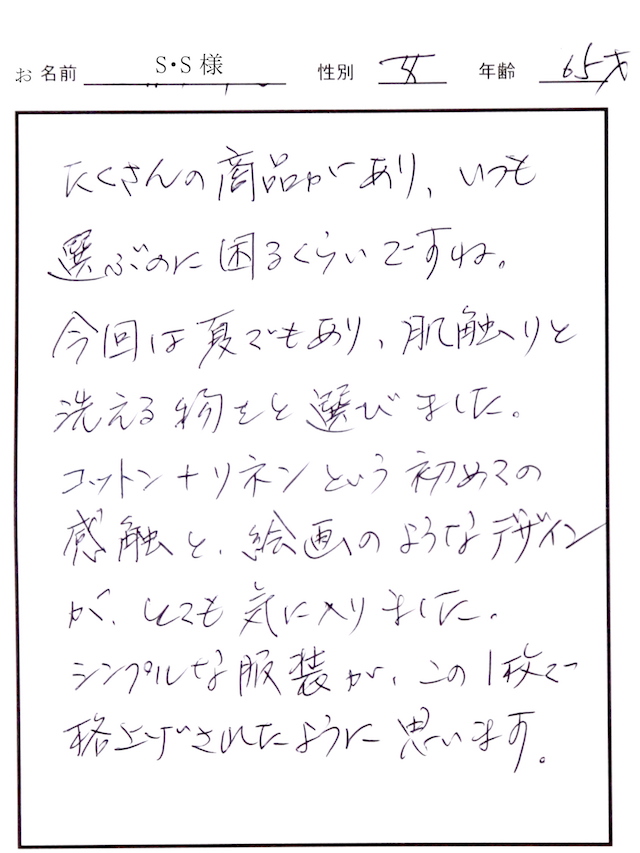 お名前 S・S様 性別 女 年齢 65才
たくさんの商品があり、いつも
選ぶのに困るくらいですね。
今回は夏でもあり、肌触りと
洗える物をと選びました。
コットン+リネンという初めての
感触と、絵画のようなデザイン
が、とても気に入りました。
シンプルな服装が、この1枚で
格上げされたように思います。